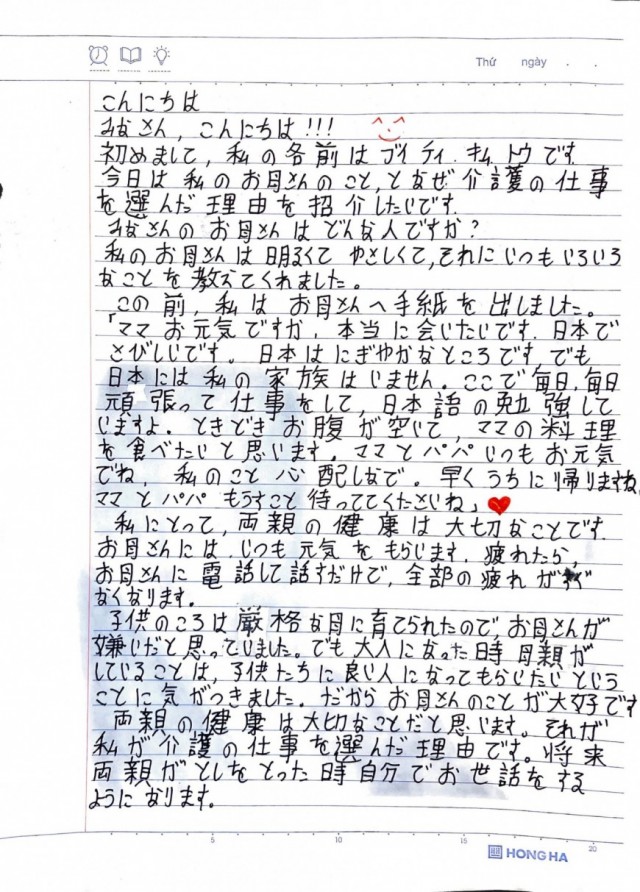 Thứ ngày . .
こんにちは
みなさん, こんにちは!!!
初めまして, 私の各前はブイ ティ. キム トウです
今日は私のお母さんのこと,となぜ介護の仕事
を選んだ理由を招介したいです。
みなさんのお母さんはどんな人ですか?
私のお母さんは明るくて やさしくて,それにいつもいろいろ
なことを教えてくれました。
この前, 私はお母さんへ手紙を出しました。
「ママお元気ですか, 本当に会いたいです. 日本で
さびしいです。日本はにぎやかなところです. でも
日本には私の家族はいません。ここで毎日,毎日
頑張って仕事をして, 日本語の勉強して
いますよ. ときどきお腹が空いて, ママの料理
を食べたいと思います。ママとパパいつもお元気
でね, 私のこと心配しなで。早くうちに帰りますね,
ママとパパ もうすこと待っててくたさいね」
私にとって, 両親の健康は大切なことです.
お母さんには,いつも元気をもらいます. 疲れたら,
お母さんに電話して話すだけで, 全部の疲れが
なくなります。
子供のころは厳格な母に育てられたので, お母さんが
嫌いだと思っていました。でも大人になった時 母親が
していることは, 子供たちに良い人になってもらいたいという
ことに気がつきました. だからお母さんのことが大好です
両親の健康は大切なことだと思います。それが
私が介護の仕事を選んだ理由です。将来
両親がとしをとった時自分でお世話をする
ようになります。
5 10 15 20
HONG HA